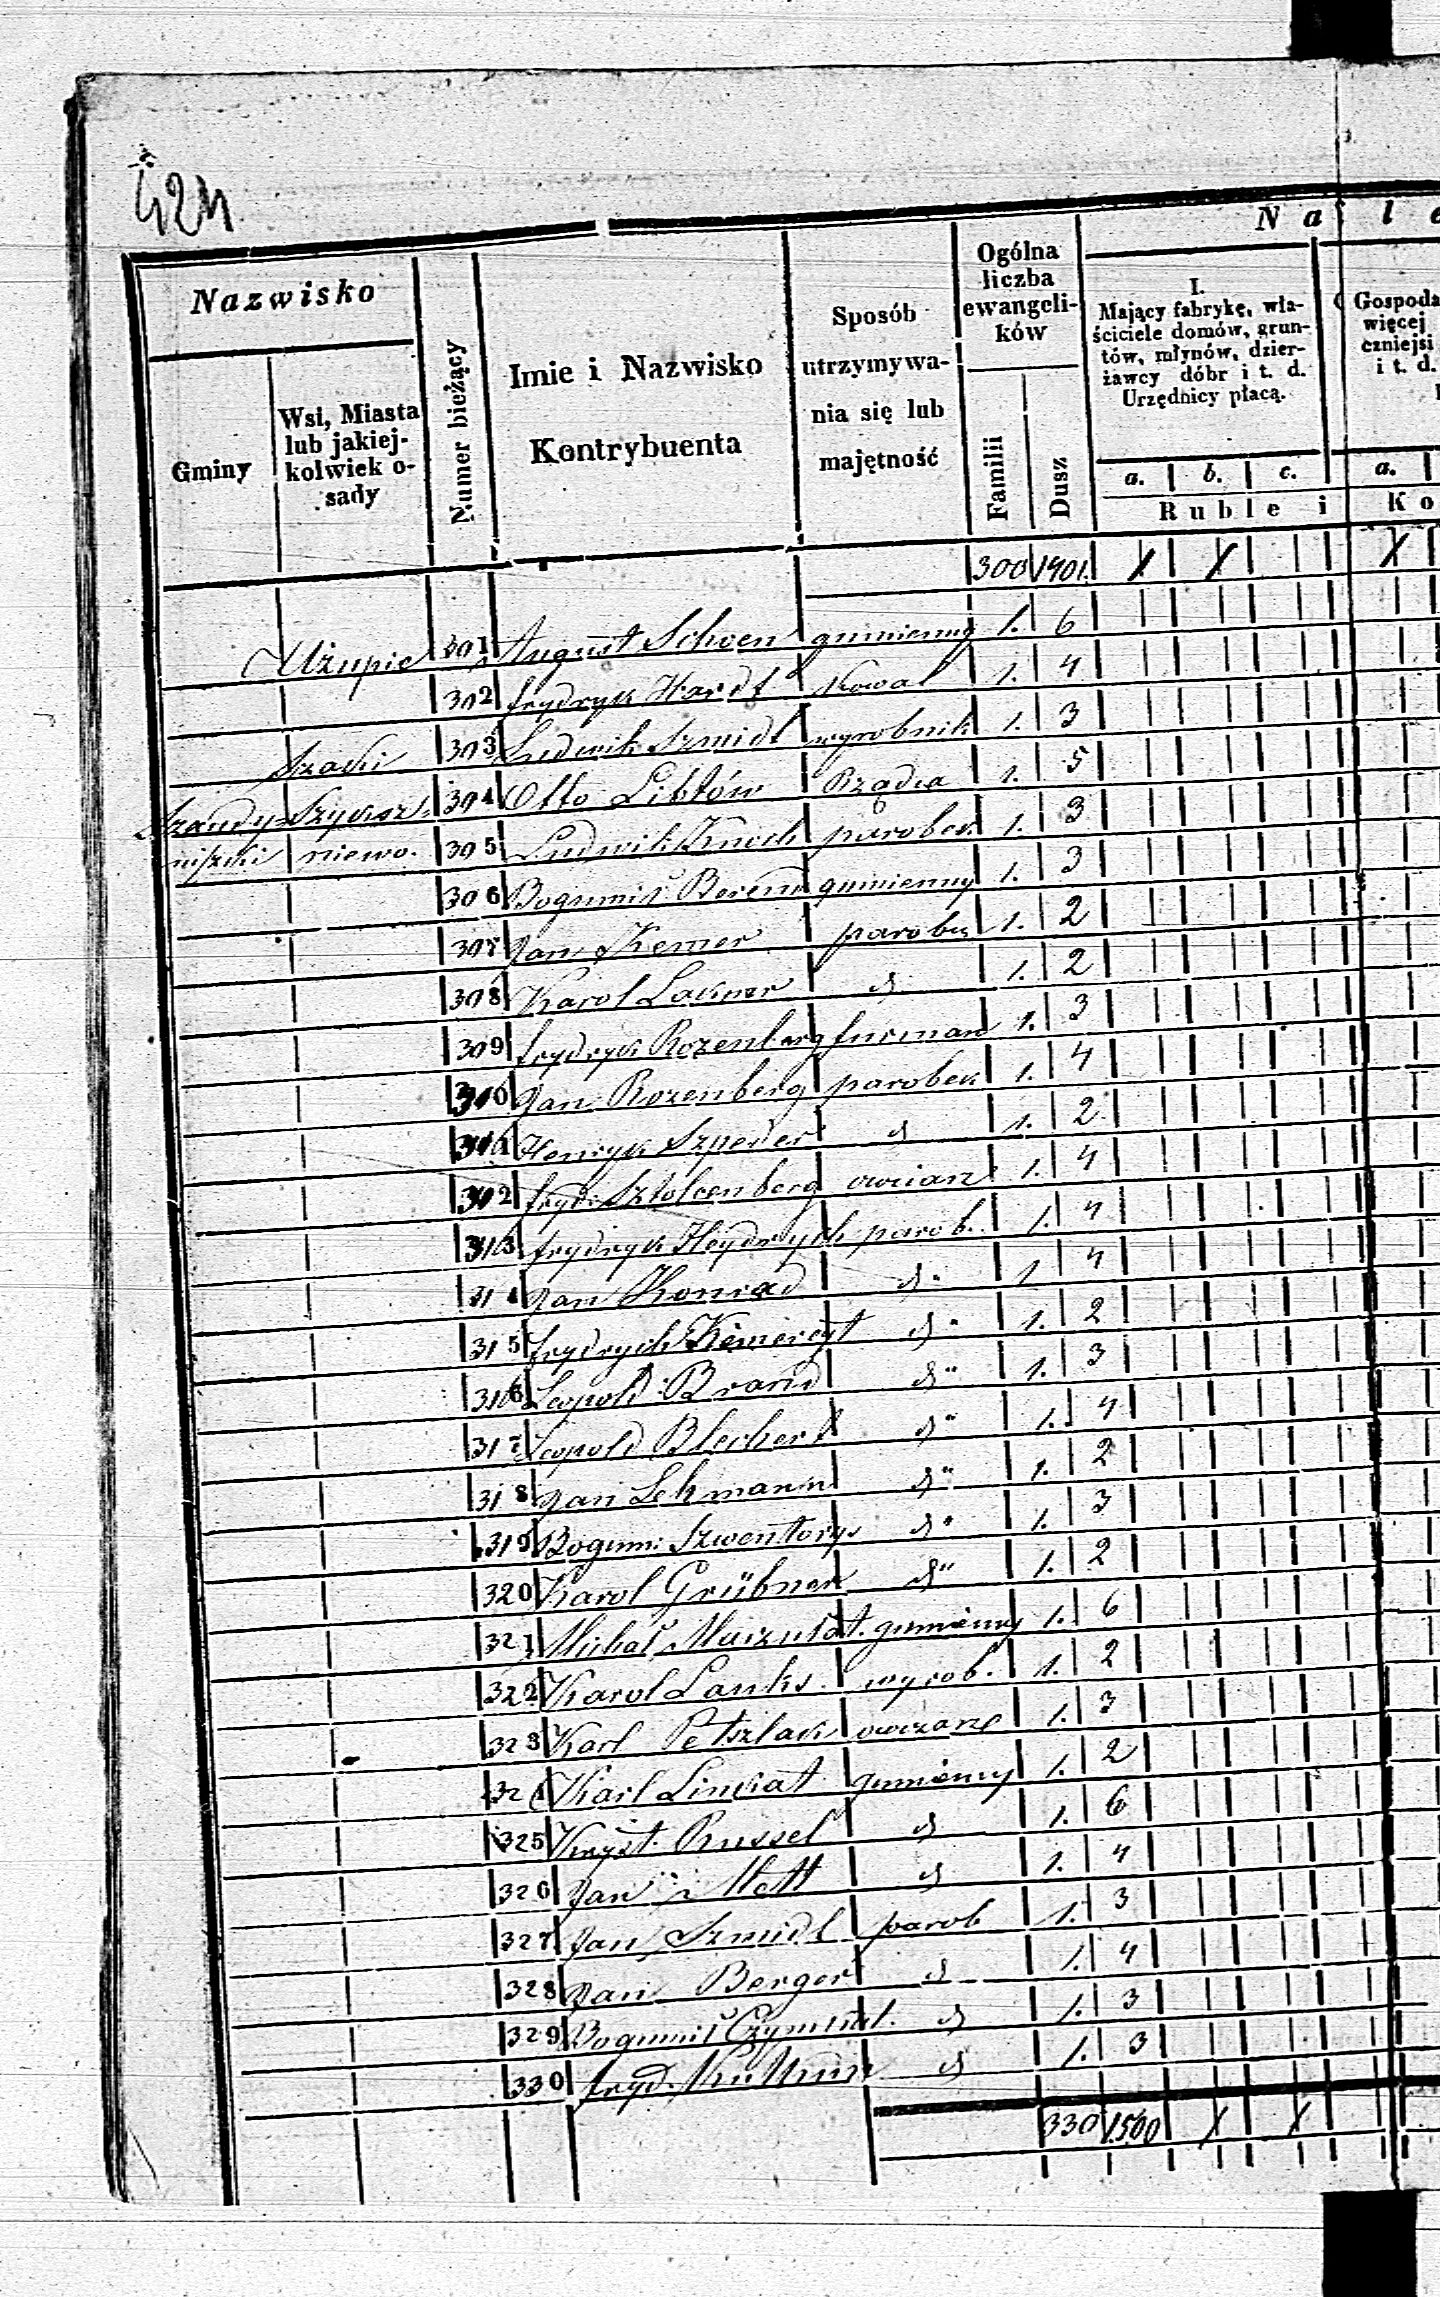 424
N a l e
Nazwisko
Gminy
Wsi, Miasta
lub jakiej-
kolwiek o-
sady
Numer bieżący
Imie i Nazwisko
Kontrybuenta
Sposób
utrzymywa-
nia się lub
majętność
Ogólna
liczba
ewangeli-
ków
Familii
Dusz
I.
Mający fabrykę, wła-
ściciele domów, grun-
tów, młynów, dzier-
żawcy dóbr i t. d.
Urzędnicy płacą.
Gospoda
więcej
czniejsi
i t. d.
a. b. c. a.
Ruble i Ko
300 1401.
Użupie 301 August Schoen gumienny 1. 6
302 frydryk Hardt kowal 1. 4
Szaki 303 Ludwik Szmidt wyrobnik 1. 3
304 Otto Libtów Rządca 1. 5
niszki niewo. 305 Ludwik Knoch parobek 1. 3
306 Bogumił Berent gumienny 1. 3
307 Jan Kemer parobek 1. 2
308 Karol Lakner d 1. 2
309 frydryk Rozenberg furman 1. 3
310 Jan Rozenberg parobek 1. 4
311 Henryk Szpeder d 1. 2
312 fryd. Sztolcenberg owciarz 1. 4
313 frydryk Heydrych parob. 1. 4
314 Jan Konrad d" 1 4
315 frydrych d" 1. 2
316 Leopold Brand d" 1. 3
317 Leopold Blechert d" 1. 4
318 Jan Lehmann d" 1. 2
319 Bogumi. Szwentorys d" 1. 3
320 Karol Grübner d" 1. 2
321 Michał gumienny 1. 6
322 Karol Lanks. wyrob. 1. 2
323 Karl Petszlack owczarz 1. 3
324 Karl Linkat gumienny 1. 2
325 Kryst. Russel d 1. 6
326 Jan Mett d 1. 4
327 Jan Szmidt parob 1. 3
328 Jan Berger d 1. 4
329 Bogumił d 1. 3
330 fryd. d 1. 3
330 1500